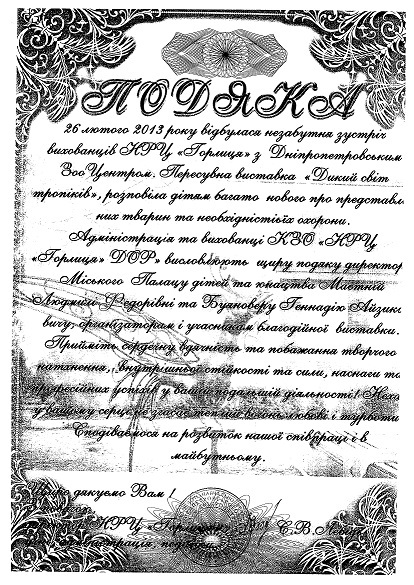 ПОДЯКА
26 лютого 2013 року відбулася незабутня зустріч
вихованців КРЦ «Горлиця» з Дніпропетровським
ЗооЦентром. Пересувна виставка «Дикий світ
тропіків», розповіла дітям багато нового про представле
них тварин та необхідністьїх охорони.
Адміністрація та вихованці КЗО «КРЦ
«Горлиця» ДОР» висловлюють щиру подяку директор
Міського Палацу дітей та юнацтва
Людмилі Федорівні та Буяноверу Геннадію Айзико
вичу, організаторам і учасникам благодійної виставки.
Прийміть сердечну вдячність та побажання творчого
натхнення, внутрішньої стійкості та сили, наснаги та
професійних успіхів у вашій подальшій діяльності! Неха
у вашому серці не згасає теплий вогонь любові і турботи
Сподіваємося на розвиток нашої співпраці і в
майбутньому.
дякуємо Вам !
КРЦ «Горлиця» С.В.